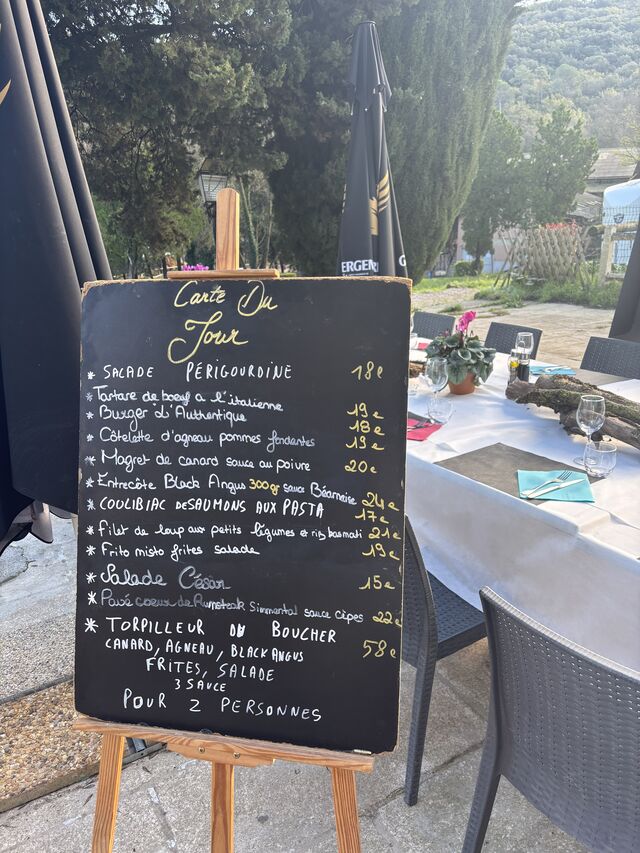 ERGEN
Carte Du
Jour
* SALADE PÉRIGOURDINE 18€
* Tartare de bœuf a l'italienne 19€
* Burger d'Authentique 18€
* Côtelette d'agneau pommes fondantes 19€
* Magret de canard sauce au poivre 20€
* Entrecôte Black Angus 300gr sauce Béarnaise 24€
* COULIBIAC DE SAUMONS AUX PASTA 17€
* Filet de loup aux petits légumes et riz basmati 21€
* Frito misto frites salade 19€
* Salade César 15€
* Pavé coeur de Rumsteak Simmental sauce cèpes 22€
* TORPILLEUR DU BOUCHER
CANARD, AGNEAU, BLACK ANGUS 58€
FRITES, SALADE
3 SAUCE
POUR 2 PERSONNES